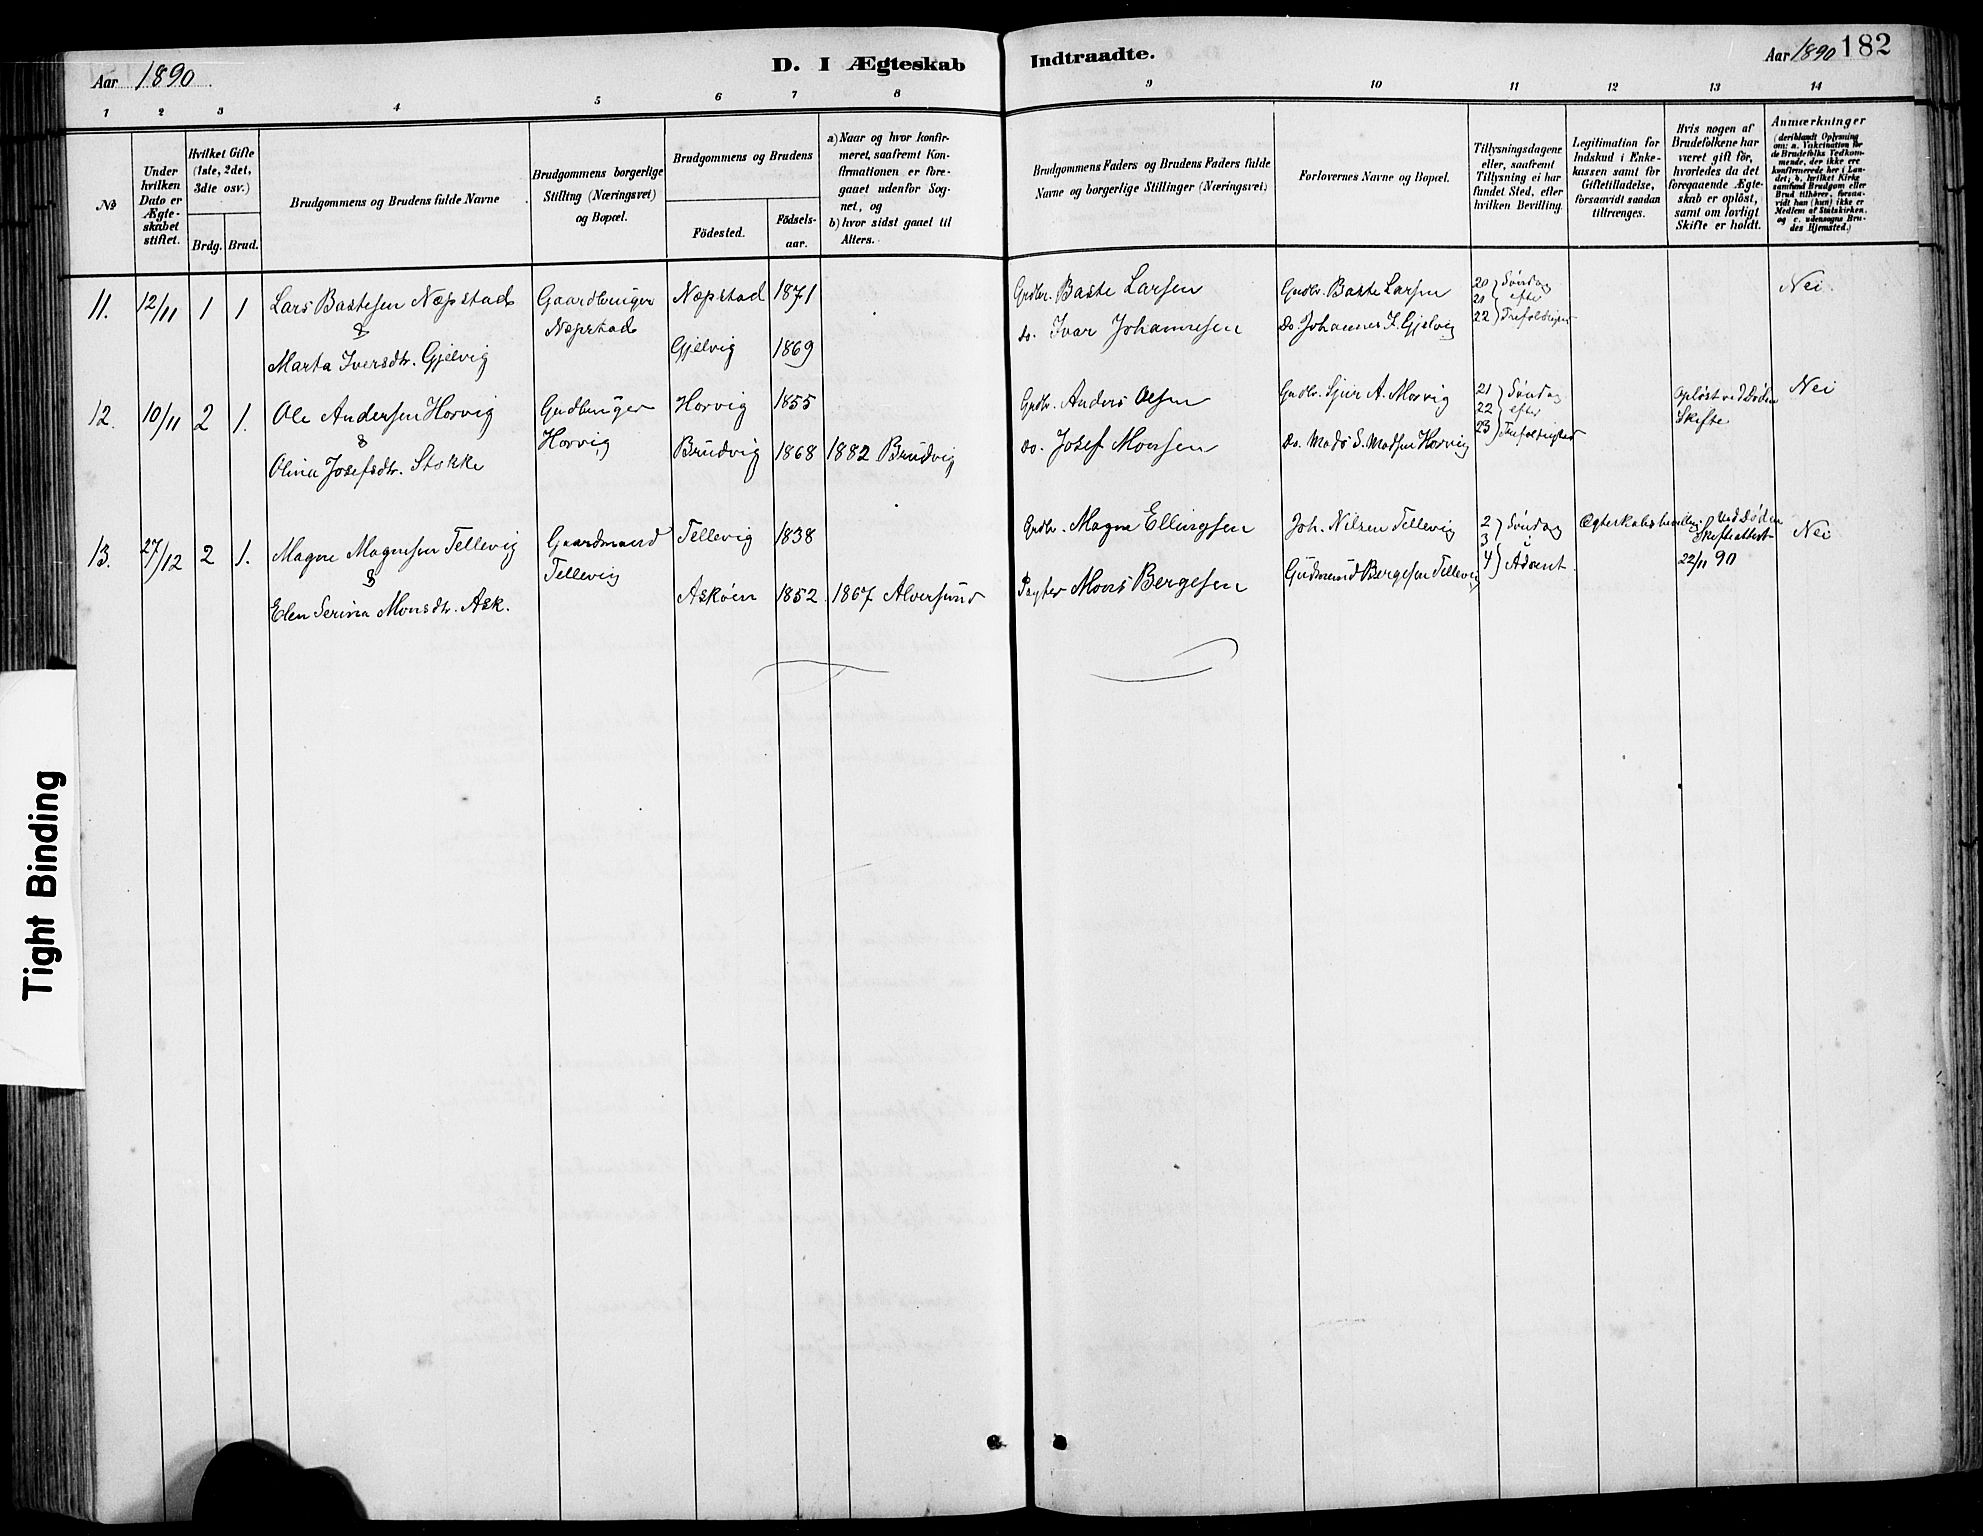 Aar 1890.
D. I Ægteskab
Indtraadte.
Aar 1890 182
1 2 3 4 5 6 7 8 9 10 11 12 13 14
№
Under hvilken Dato er Ægteskabet stiftet.
Hvilket Gifte (1ste, 2det, 3die osv.)
Brdg. Brud.
Brudgommens og Brudens fulde Navne
Brudgommens borgerlige Stilling (Næringsvei) og Bopæl.
Brudgommens og Brudens
Födested.
Födselsaar.
a) Naar og hvor konfirmeret, saafremt Konfirmationen er foregaaet udenfor Sognet, og
b) hvor sidst gaaet til Alters.
Brudgommens Faders og Brudens Faders fulde Navne og borgerlige Stillinger (Næringsvei)
Forlovernes Navne og Bopæl.
Tillysningsdagene eller, saafremt Tillysning ei har fundet Sted, efter hvilken Bevilling.
Legitimation for Indskud i Enkekassen samt for Giftetilladelse, forsaavidt saadan tiltrænges.
Hvis nogen af Brudefolkene har været gift för, hvorledes da det foregaaende Ægteskab er oplöst, samt om lovligt Skifte er holdt.
Anmærkninger
(deriblandt Oplysning om: a. Vakcination for de Brudefolks Vedkommende, der ikke ere konfirmerede her i Landet, b. hvilket Kirkesamfund Brudgom eller Brud tilhører, forsaavidt han (hun) ikke er Medlem af Statskirken, og c. udensogns Brudes Hjemsted.)
11. 12/11 1 1 Lars Bastesen Næpstad Gaardbruger Næpstad 1871 Grdbr. Baste Larsen Grdbr. Baste Larsen 20 Söndag Nei.
& Næpstad do. Ivar Johannesen do. Johannes I. Gjelvig 21 efter
Marta Iversdtr. Gjelvig Gjelvig 1869 22 Trefoldighed
12. 10/11 2 1. Ole Andersen Horvig Grdbruger Horvig 1855 Grdbr. Anders Olsen Grdbr. A. Morvig 21 Söndag Oplöst ved Döden Nei
& Horvig 22 efter Skifte
Olina Josefsdtr. Stokke Brudvig 1868 1882 Brudvig do. Josef Monsen do. Mads S. Madsen Horvig 23 Trefoldighed
13. 27/12 2 1. Magne Magnesen Tellevig Gaardmand Tellevig 1838 Grdbr. Magne Ellingsen Joh. Nilsen Tellevig 2 Söndag Ved Döden Nei
& Tellevig 3 i Skifteattest
Elen Serina Monsdtr. Ask. Asköen 1852 1867 Alversund Pagter Mons Bergesen Gudmund Bergesen Tellevig 4 Advent. 22/11 90
Tight Binding